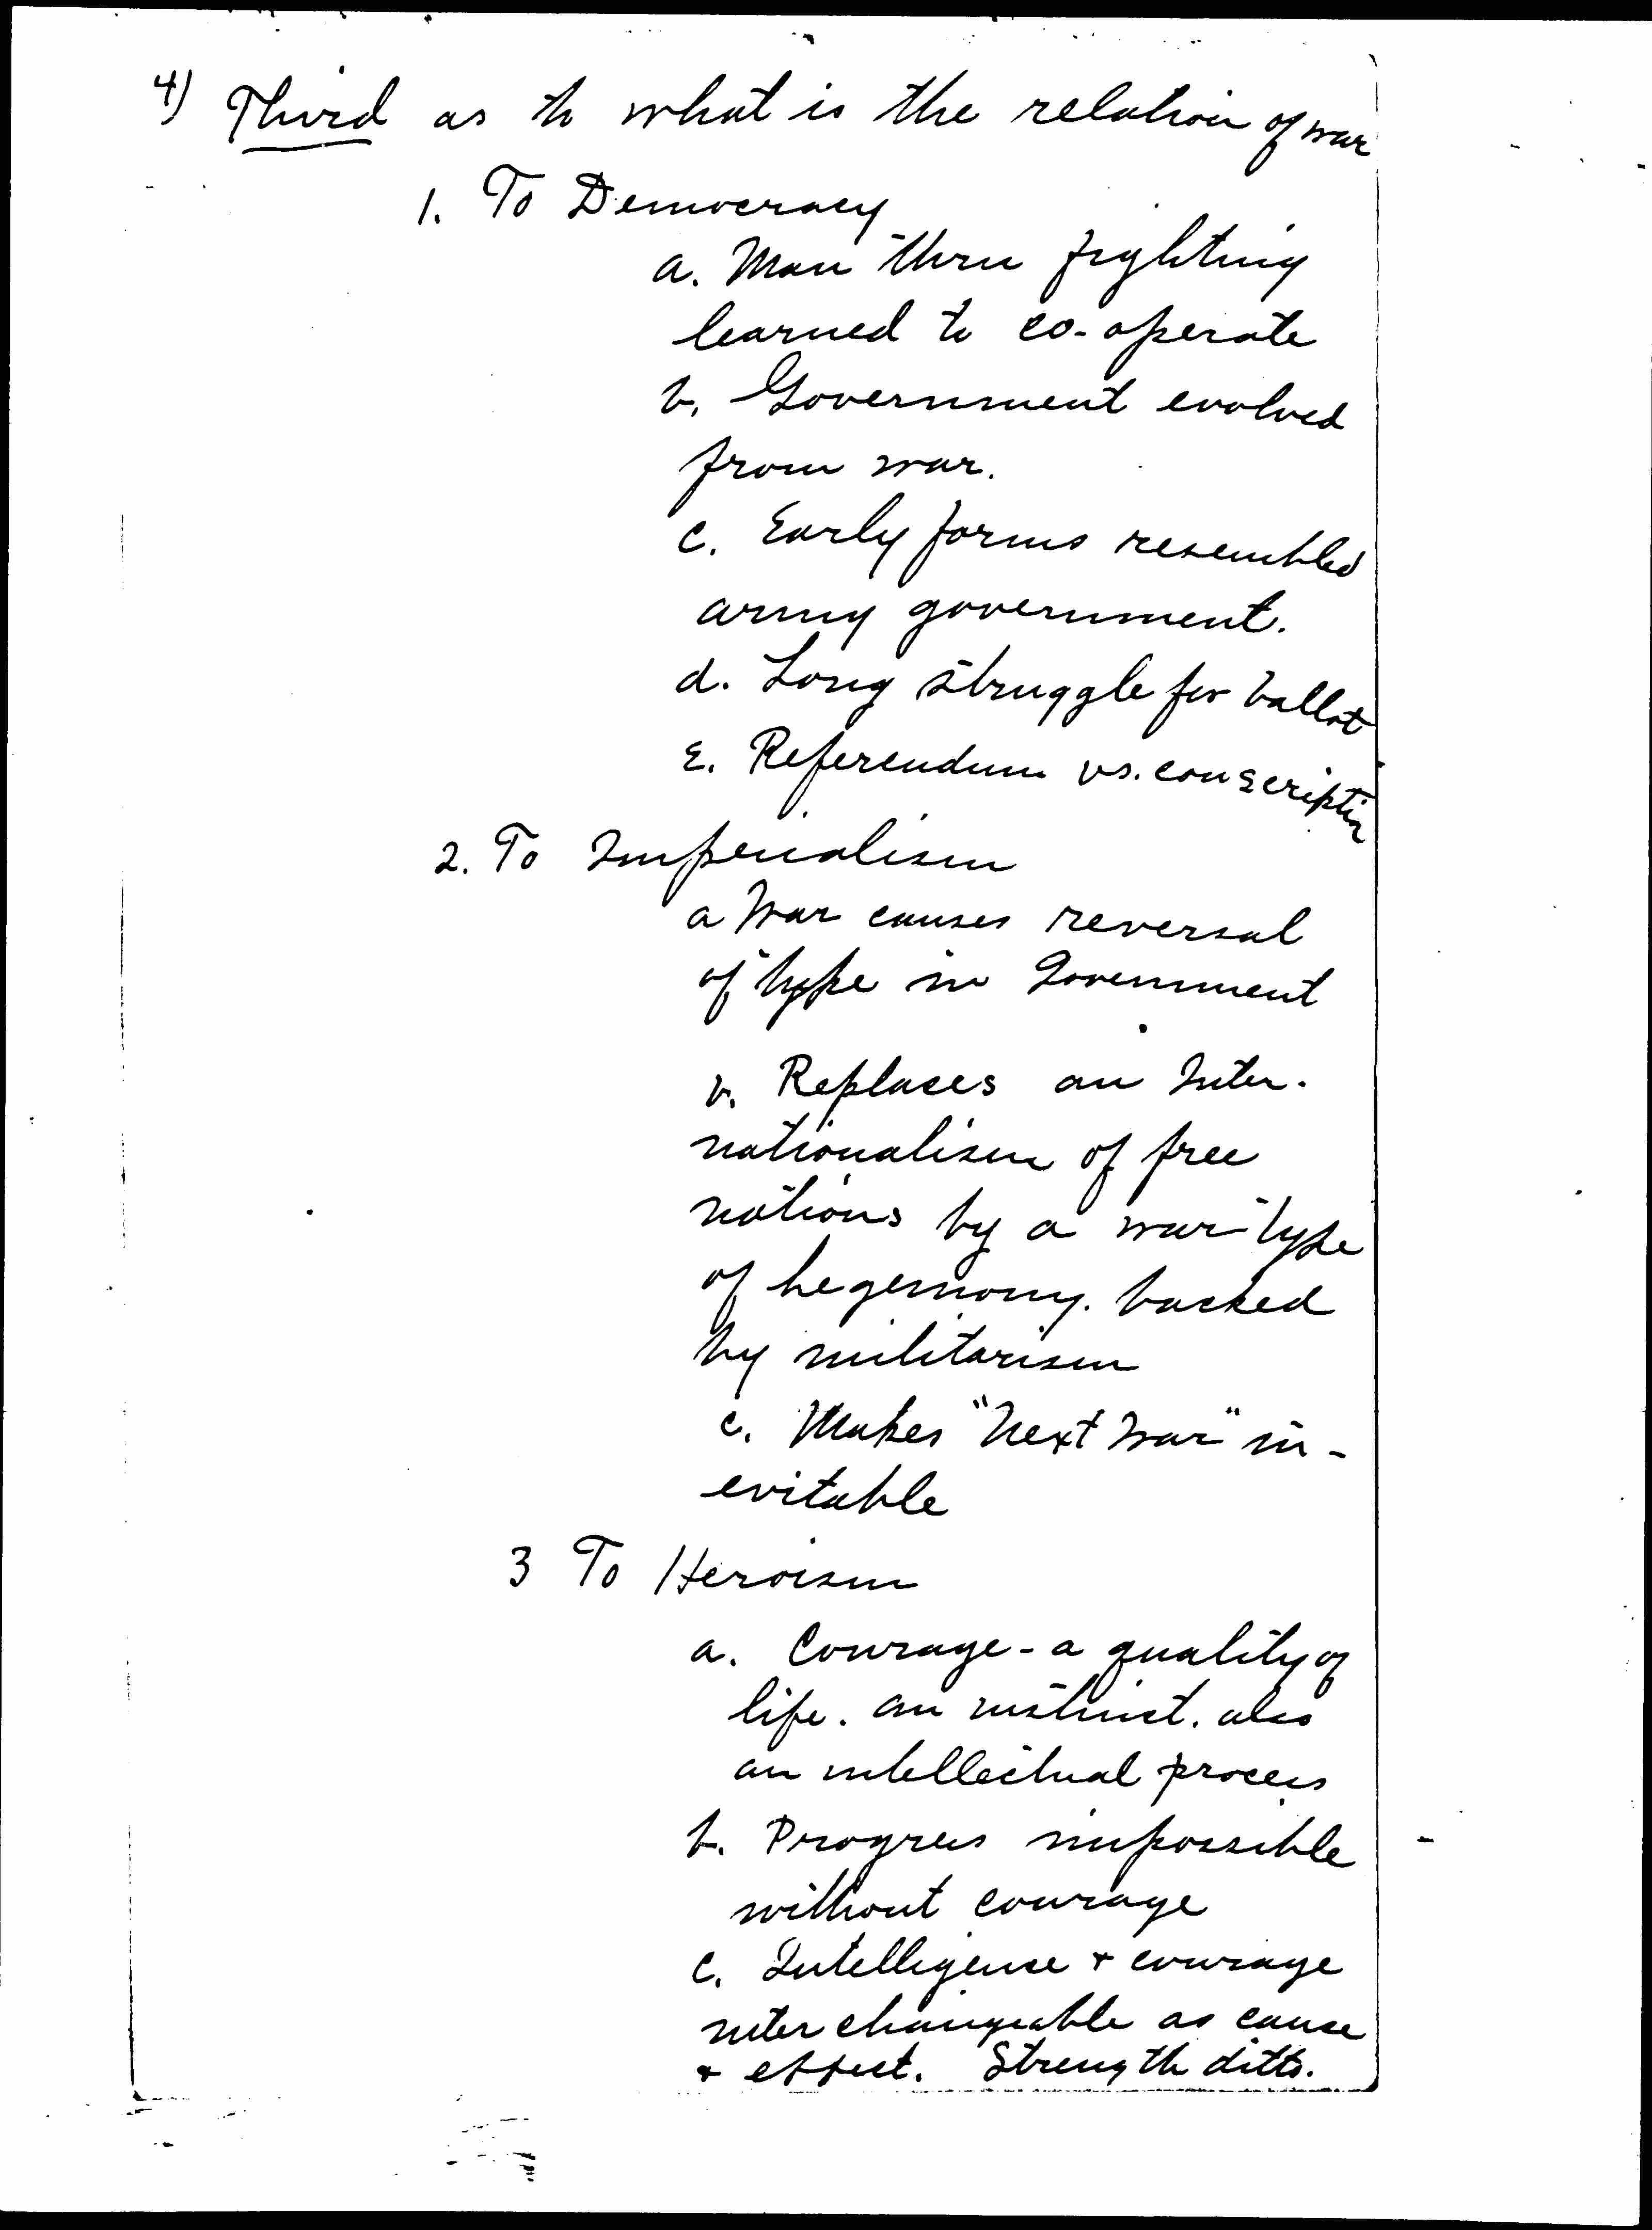 4) Third as to what is the relation of war
1. To Democracy
a. Man thru fighting
learned to co-operate
b. Government evolved
from war.
c. Early forms resembled
army government.
d. Long struggle for ballot
E. Referendum vs. conscription
2. To Imperialism
a War causes reversal
of type in Government
b. Replaces an Inter-
nationalism of free
nations by a war-type
of hegemony. backed
by militarism
c. Makes "Next War" in-
evitable
3 To Heroism
a. Courage - a quality of
life. an instinct. also
an intellectual process
b. Progress impossible
without courage
c. Intelligence & courage
interchangeable as cause
& effect. Strength ditto.